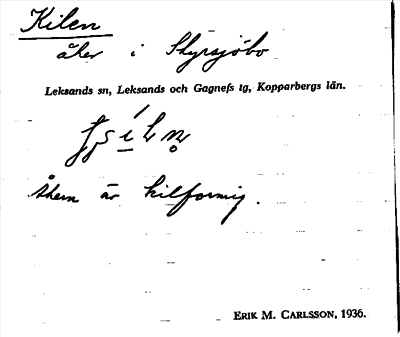 Kilen
åker i Styrsjöbo
Leksands sn, Leksands och Gagnefs tg, Kopparbergs län.
Åkern är kilformig.
ERIK M. CARLSSON, 1936.